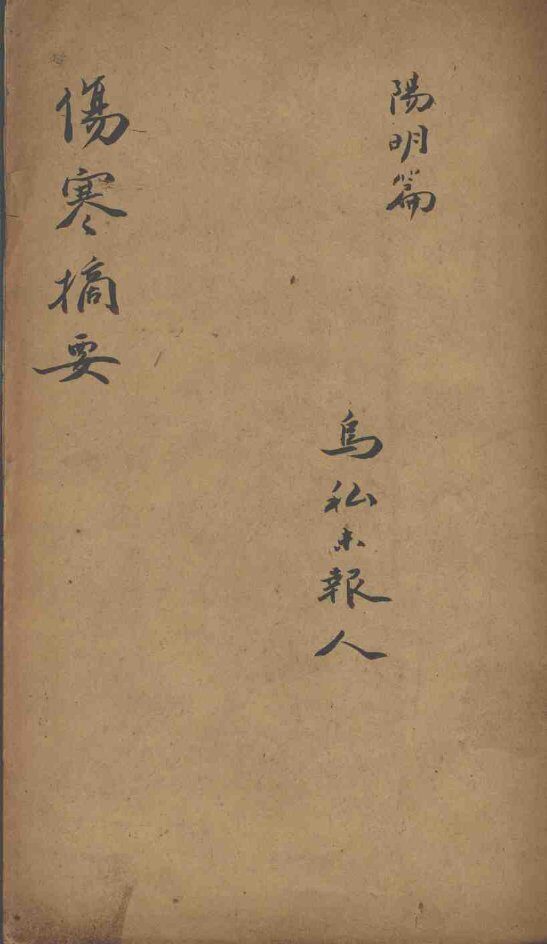 陽明篇
烏私未報人
傷寒摘要